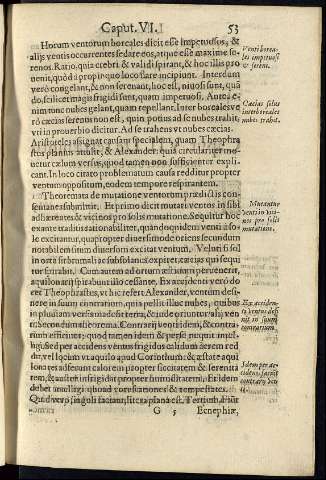 Caput. VI.
53
Horum ventorum boreales dicit esse impetuosos, &
alijs ventis occurrentes sedare eos, atque esse maxime se-
renos. Ratio, quia crebri & validi spirant, & hoc illis pro
uenit, quòd a propinquo loco flare incipiunt. Interdum
verò congelant, & non serenant, hoc est, niuosi sunt, quā
do, scilicet magis frigidi sunt, quam impetuosi. Ante
nim tunc nubes gelant, quam repellant. Inter boreales ve
rò cæcias serenus non est, quin potius ad se nubes trahit,
vti in prouerbio dicitur. Ad se trahens vt nubes cæcias.
Aristoteles assignat causam specialem, quam Theophra
stus planius attulit, & Alexander: quia circulariter mo-
uetur cælum versus, quod tamen non sufficienter expli-
cant. In loco citato problematum causa redditur propter
ventum oppositum, eodem tempore respirantem.
Theoremata de mutatione ventorum prædictis con-
sentanea subinfert. Et primo dicit mutari ventos in sibi
adhærentes & vicinos pro solis mutatione. Sequitur hoc
ex ante traditis rationabiliter, quandoquidem venti à so
le excitantur, quapropter diuersimode oriens secundum
notabilem situm diuersum excitat ventum. Veluti si sol
in ortu sit brumali
tur spirabit. Cum autem ad ortum æstiuum peruenerit,
aquilonari spirabunt illo cessante. Ex accidenti verò do
cet Theophrastus, vt hic refert Alexander, ventum desi-
nere in suum contrarium, quia pellit illuc nubes, quibus
in pluuiam versis
tus secundum
bus tempestates
ter se accidens ventus frigidus calidum aerem red
dit, vel locum vt aquilo apud Corinthum: & æstate aqui
lonares adferunt calorem propter siccitatem & sereni
tem, & austri in frigidat propter humiditatem. Eiidem
Quid vero singuli faciant, litera plana est. Tertium, dicit
G 5
Ecnephiæ,
Venti borea-
les impetuosi
& sereni.
Cæcias solus
inter boreales
nubes trahit.
Mutantur
venti in vici-
nos pro solis
mutatione.
Ex acciden-
ti ventus desi-
nit in suum
contrarium.
Idem per ac-
cidens, facit
contrary